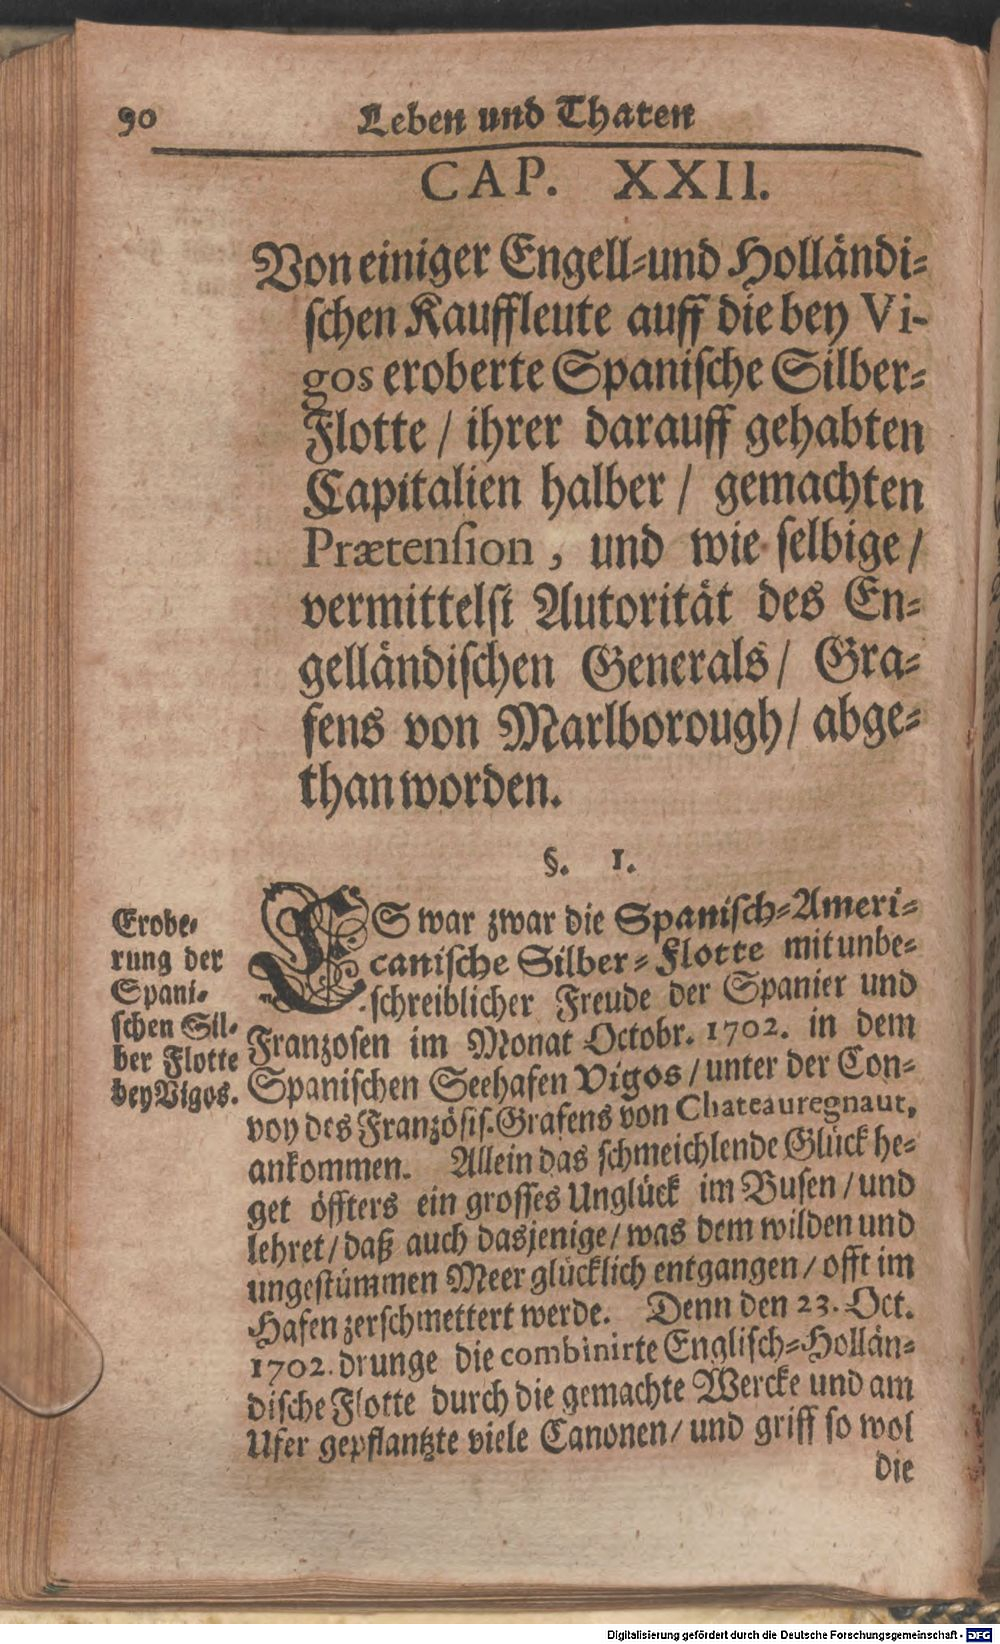 90 Leben und Thaten
CAP. XXII.
Von einiger Engell-und Holländi-
schen Kauffleute auff die bey Vi-
gos eroberte Spanische Silber-
Flotte / ihrer darauff gehabten
Capitalien halber / gemachten
Prætension, und wie selbige /
vermittelst Autorität des En-
gelländischen Generals / Gra-
fens von Marlborough / abge-
than worden.
§. 1.
Erobe-
rung der
Spani-
schen Sil-
ber Flotte
bey Vigos.
ES war zwar die Spanisch-Ameri-
canische Silber-Flotte mit unbe-
schreiblicher Freude der Spanier und
Franzosen im Monat Octobr. 1702. in dem
Spanischen Seehafen Vigos / unter der Con-
voy des Französis. Grafens von Chateauregnaut,
ankommen. Allein das schmeichlende Glück he-
get öffters ein grosses Unglück im Busen / und
lehret / daß auch dasjenige / was dem wilden und
ungestümmen Meer glücklich entgangen / offt im
Hafen zerschmettert werde. Denn den 23. Oct.
1702. drunge die combinirte Englisch-Hollän-
dische Flotte durch die gemachte Wercke und am
Ufer gepflantzte viele Canonen / und griff so wol
die
Digitalisierung gefördert durch die Deutsche Forschungsgemeinschaft - DFG